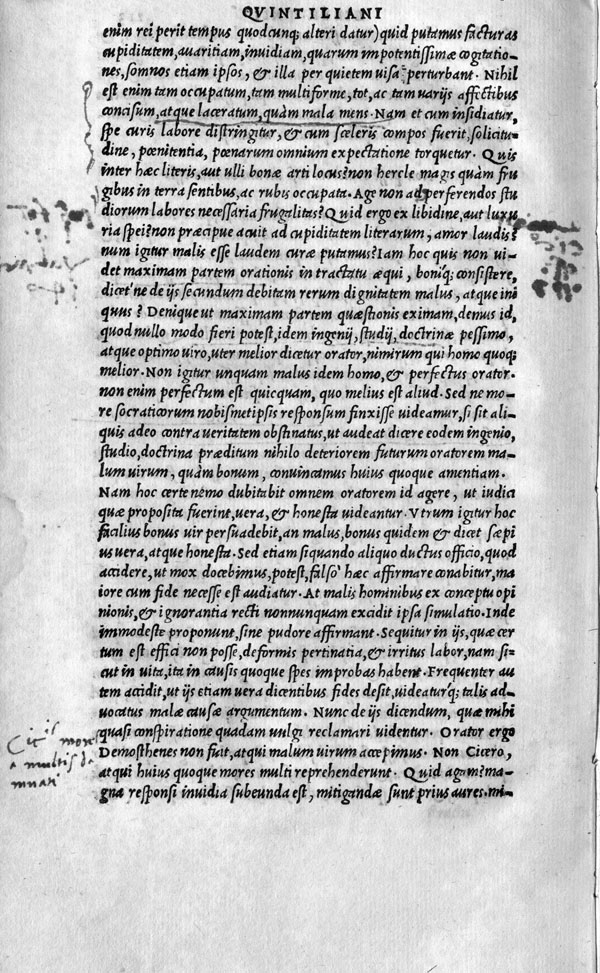 QVINTILIANI
enim rei perit tempus quodcunq; alteri datur) quid putamus facturas
cupiditatem, auaritiam, inuidiam, quarum impotentissimæ cogitatio-
nes, somnos etiam ipsos, & illa per quietem uisa perturbant. Nihil
est enim tam occupatum, tam multiforme, tot, ac tam uarijs affectibus
concisum, atque laceratum, quàm mala mens. Nam et cum insidiatur,
spe curis labore distringitur, & cum sceleris compos fuerit, solicitu-
dine, pœnitentia, pœnarum omnium expectatione torquetur. Quis
inter hæc literis, aut ulli bonæ arti locus? non hercle magis quàm fru
gibus in terra sentibus, ac rubis occupata. Age non ad perferendos stu
diorum labores necessaria frugalitas? Quid ergo ex libidine, aut luxu
ria spei? non præcipue acuit ad cupiditatem literarum, amor laudis?
num igitur malis esse laudem curæ putamus? Iam hoc quis non ui-
det maximam partem orationis in tractatu æqui, boniq; consistere,
dicet'ne de ijs secundum debitam rerum dignitatem malus, atque ini
quus? Denique ut maximam partem quæstionis eximam, demus id,
quod nullo modo fieri potest, idem ingenij, studij, doctrinæ pessimo,
atque optimo uiro, uter melior dicetur orator, nimirum qui homo quoq;
melior. Non igitur unquam malus idem homo, & perfectus orator.
non enim perfectum est quicquam, quo melius est aliud. Sed ne mo-
re socraticorum nobismetipsis responsum finxisse uideamur, si sit ali-
quis adeo contra ueritatem obstinatus, ut audeat dicere eodem ingenio,
studio, doctrina præditum nihilo deteriorem futurum oratorem ma-
lum uirum, quàm bonum, conuincamus huius quoque amentiam.
Nam hoc certe nemo dubitabit omnem oratorem id agere, ut iudici
quæ proposita fuerint, uera, & honesta uideantur. Vtrum igitur hoc
facilius bonus uir persuadebit, an malus, bonus quidem & dicet sæpi
us uera, atque honesta. Sed etiam siquando aliquo ductus officio, quod
accidere, ut mox docebimus, potest, falsò hæc affirmare conabitur, ma
iore cum fide necesse est audiatur. At malis hominibus ex conceptu opi
nionis, & ignorantia recti nonnunquam excidit ipsa simulatio. Inde
immodeste proponunt, sine pudore affirmant. Sequitur in ijs, quæ cer
tum est effici non posse, deformis pertinatia, & irritus labor, nam si-
cut in uita, ita in causis quoque spes improbas habent. Frequenter au
tem accidit, ut ijs etiam uera dicentibus fides desit, uideaturq; talis ad-
uocatus malæ causæ argumentum. Nunc de ijs dicendum, quæ mihi
quasi conspiratione quadam uulgi reclamari uidentur. Orator ergo
Demosthenes non fuit, atqui malum uirum accepimus. Non Cicero,
atqui huius quoque mores multi reprehenderunt. Quid agam? ma-
gna responsi inuidia subeunda est, mitigandæ sunt prius aures. mi-
Cic is mor
a multis da
mnari